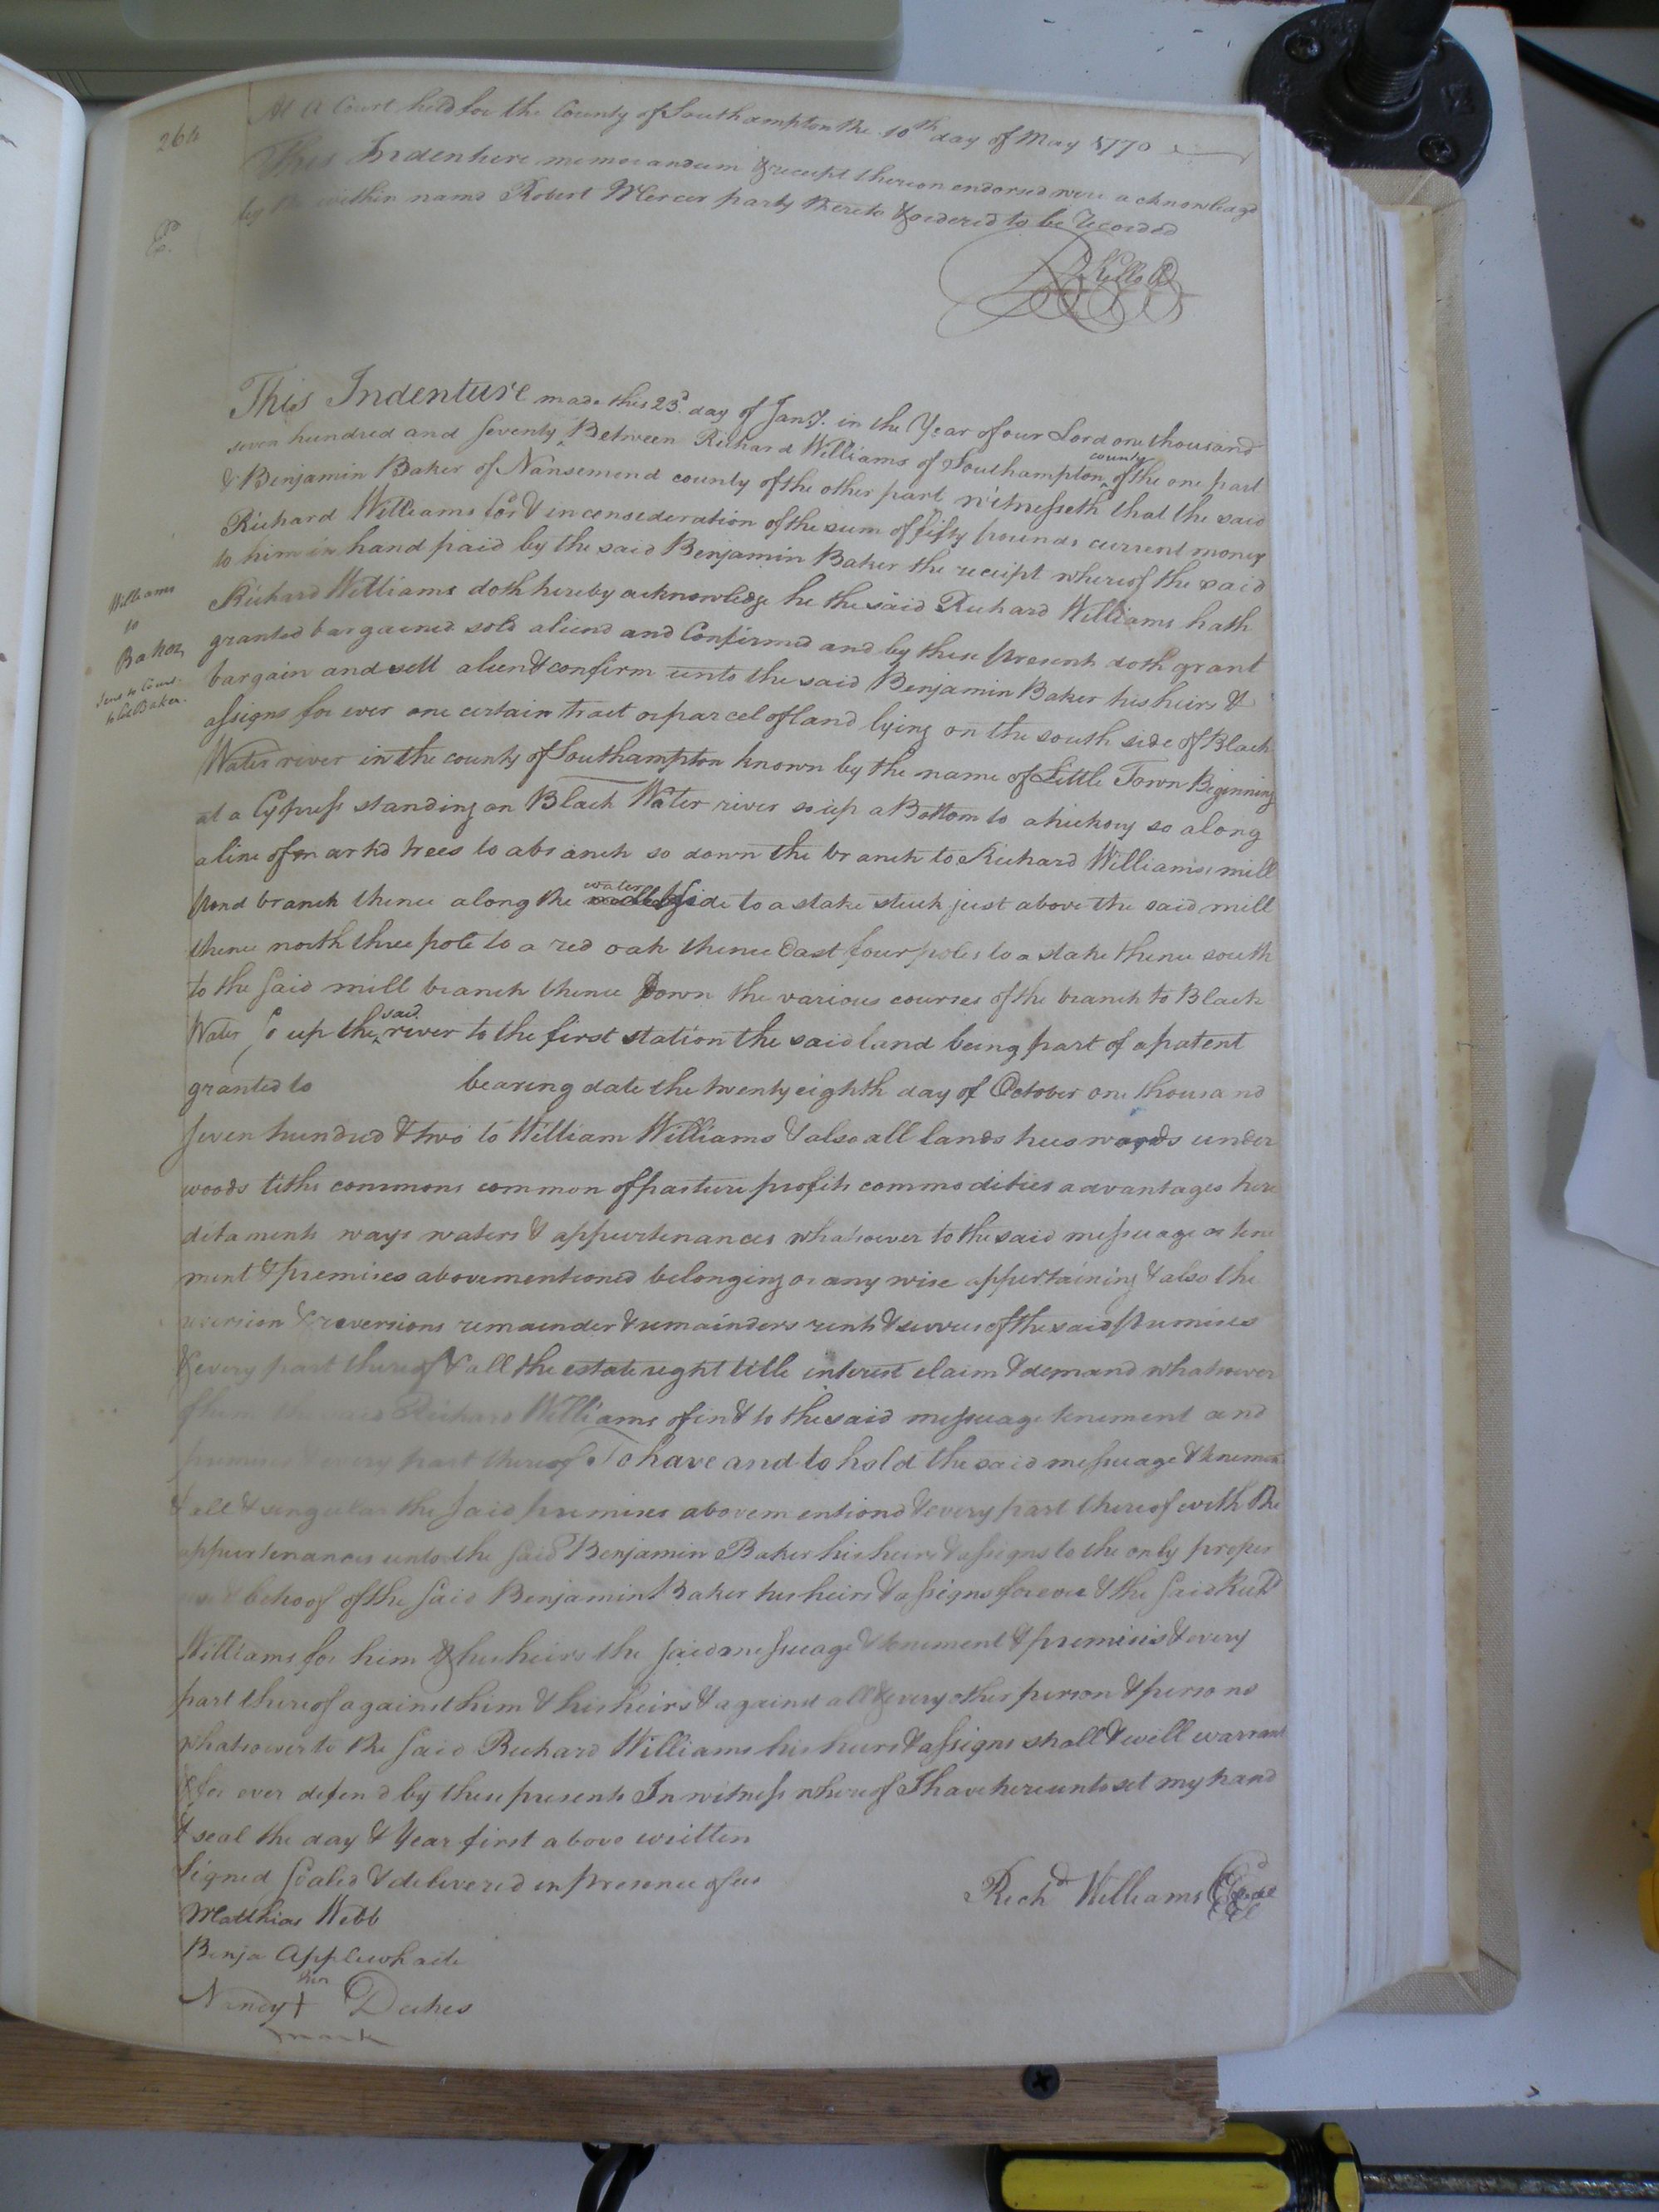 264
At a Court held for the County of Southampton the 10th day of May 1770
This Indenture memorandum & receipt thereon endorsed were acknowledgd
by the within namd Robert Mercer party thereto & ordered to be Recorded
Exd
This Indenture made this 23d. day of Jany. in the Year of our Lord one thousand
seven hundred and seventy Between Richard Williams of Southampton county of the one part
& Benjamin Baker of Nansemond county of the other part witnesseth that the said
Richard Williams for & in consideration of the sum of fifty pounds current money
to him in hand paid by the said Benjamin Baker the receipt whereof the said
Richard Williams doth hereby acknowledge he the said Richard Williams hath
granted bargained sold aliend and Confirmd and by these presents doth grant
bargain and sell alien & confirm unto the said Benjamin Baker his heirs &
assigns for ever one certain tract or parcel of land lying on the south side of Black
Water river in the county of Southampton known by the name of Little Town Beginning
at a Cypress standing on Black Water river so up a Bottom to a hickory so along
a line of markd trees to a branch so down the branch to Richard Williams's mill
pond branch thence along the water side to a stake stuck just above the said mill
thence north three pole to a red oak thence East four poles to a stake thence south
to the said mill branch thence Down the various courses of the branch to Black
Water so up the said river to the first station the said land being part of a patent
granted to bearing date the twenty eighth day of October one thousand
seven hundred & two to William Williams & also all lands trees woods under
woods tiths commons common of pasture profits commodities advantages here
ditaments ways waters & appurtenances whatsoever to the said messuage or tene
ment & premises abovementioned belonging or any wise appertaining & also the
reversion & reversions remainder & remainders rents & servces of the said premises
& every part thereof & all the estate right title interest claim & demand whatsoever
of him the said Richard Williams of in & to the said messuage tenement and
premises & every part thereof To have and to hold the said messuage & tenement
& all & singular the said premises abovementiond & every part thereof with the
appurtenances unto the said Benjamin Baker his heirs & assigns to the only proper
use & behoof of the said Benjamin Baker his heirs & assigns forever & the said Richd
Williams for him & his heirs the said messuage & tenement & premisis & every
part thereof against him & his heirs & against all & every other person & persons
whatsoever to the said Richard Williams his heirs & assigns shall & will warrant
& for ever defend by these presents In witness whereof I have hereunto set my hand
& seal the day & Year first above written
Signed sealed & delivered in presence of us
Richd Williams Seal
Matthias Webb
Benja Applewhaite
her
Nancy + Dukes
mark
Williams
to
Baker